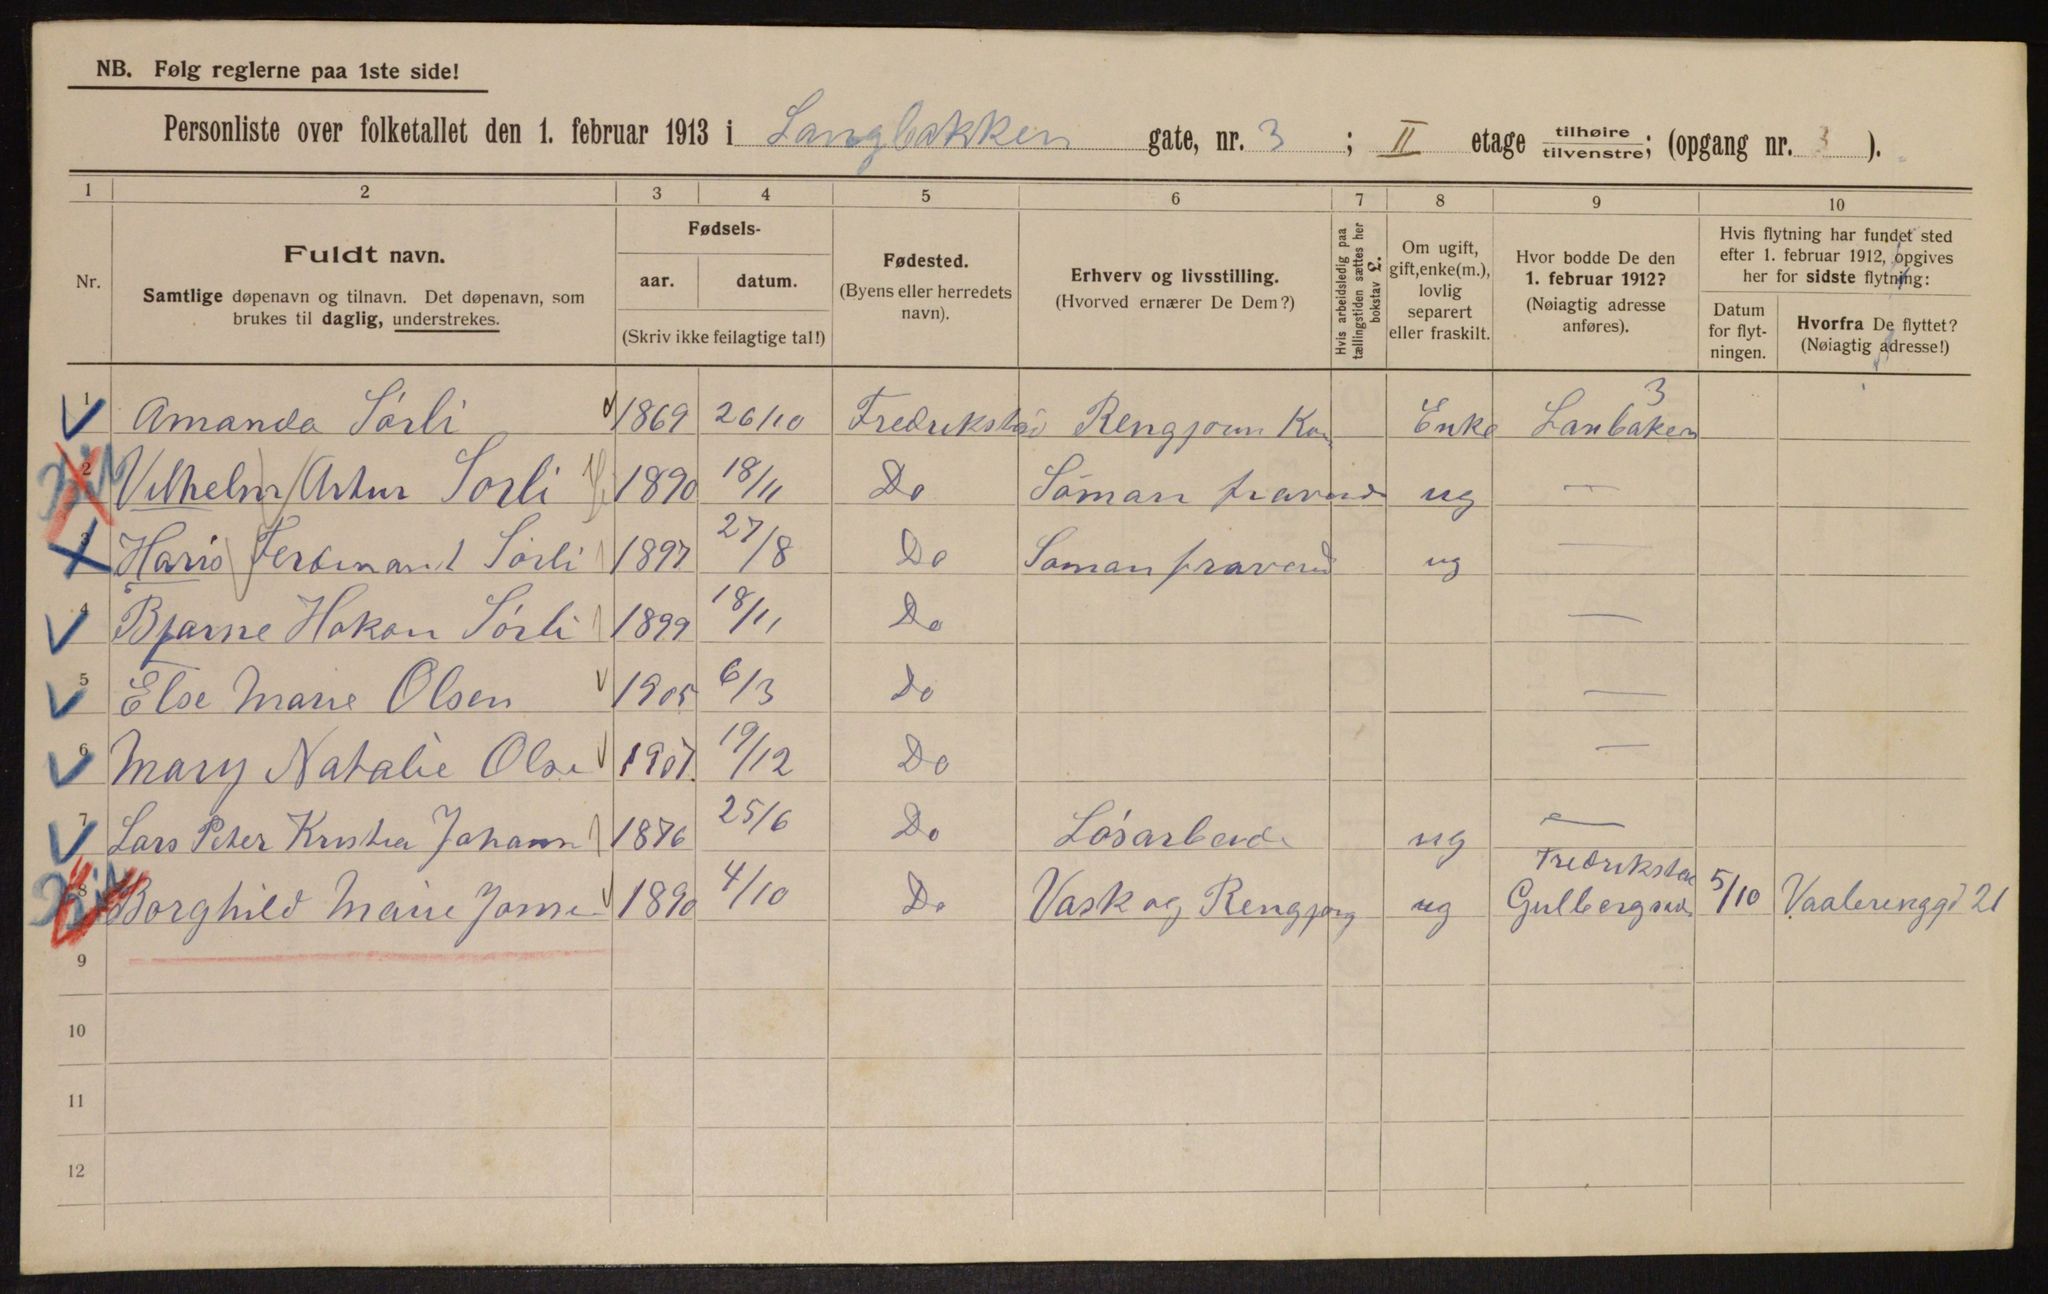 NB. Følg reglerne paa 1ste side!
Personliste over folketallet den 1. februar 1913 i Langbakken gate, nr. 3 ; II etage tilhøire tilvenstre; (opgang nr. 3 ).
1 2 3 4 5 6 7 8 9 10
Nr.
Fuldt navn.
Samtlige døpenavn og tilnavn. Det døpenavn, som
brukes til daglig, understrekes.
Fødsels-
aar. datum.
(Skriv ikke feilagtige tal!)
Fødested.
(Byens eller herredets
navn).
Erhverv og livsstilling.
(Hvorved ernærer De Dem?)
Hvis arbeidsledig paa
tællingstiden sættes her
bokstav L.
Om ugift,
gift,enke(m.),
lovlig
separert
eller fraskilt.
Hvor bodde De den
1. februar 1912?
(Nøiagtig adresse
anføres).
Hvis flytning har fundet sted
efter 1. februar 1912, opgives
her for sidste flytning:
Datum
for flyt-
ningen.
Hvorfra De flyttet?
(Nøiagtig adresse!)
1 Amanda Sörli 1869 26/10 Fredrikstad Rengjörin Kon Enke Lanbaken 3
2 Vilhelm Artur Sorli 1890 18/11 Do Söman fraverd ug —
3 Haris Ferdinant Sörli 1897 27/8 Do Soman fraverd ug —
4 Bjarne Hokon Sörli 1899 18/11 Do —
5 Else Marie Olsen 1905 6/3 Do —
6 Mary Natalie Olse 1907 19/12 Do —
7 Lars Peter Kristia Johann 1876 25/6 Do Lösarbeide ug —
8 Borghild Marie Jonse 1890 4/10 Do Vask og Rengjörg ug Fredrikstad Gulbergsid 5/10 Vaalerenggd 21
9
10
11
12